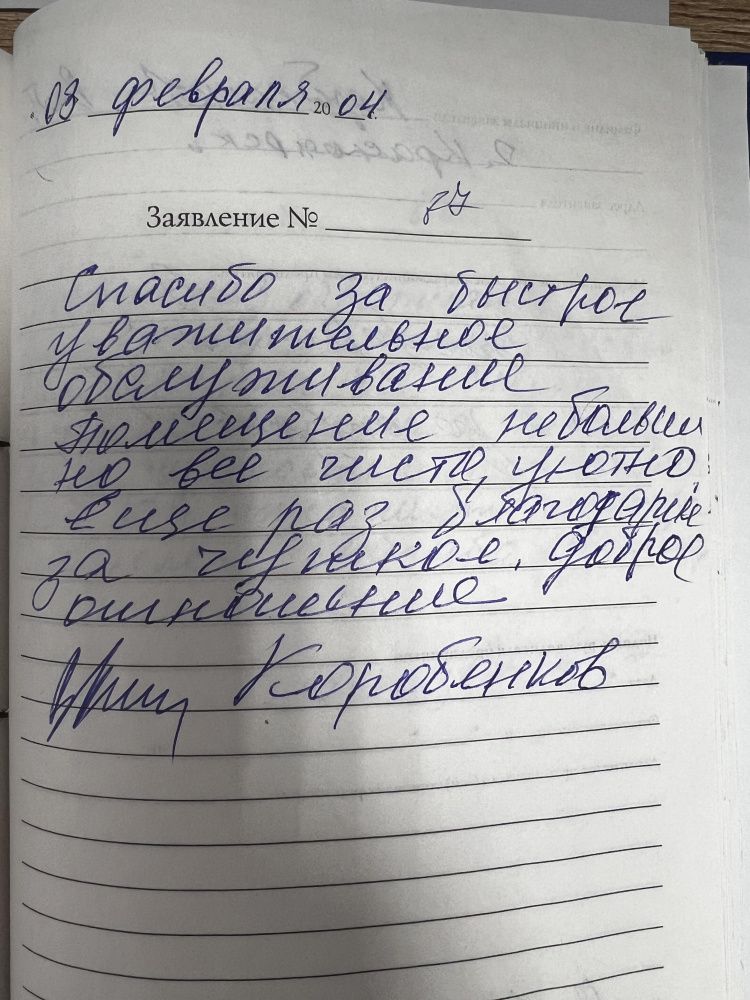 03 февраля 2004
Заявление № 77
Спасибо за быстрое
уважительное
обслуживание
Помещение небольш
но все чисто, уютно
еще раз благодарю
за чуткое, доброе
отношение
Коробенков